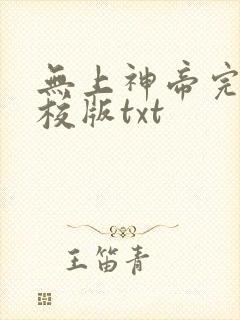 無上神帝完
校版txt
王笛青